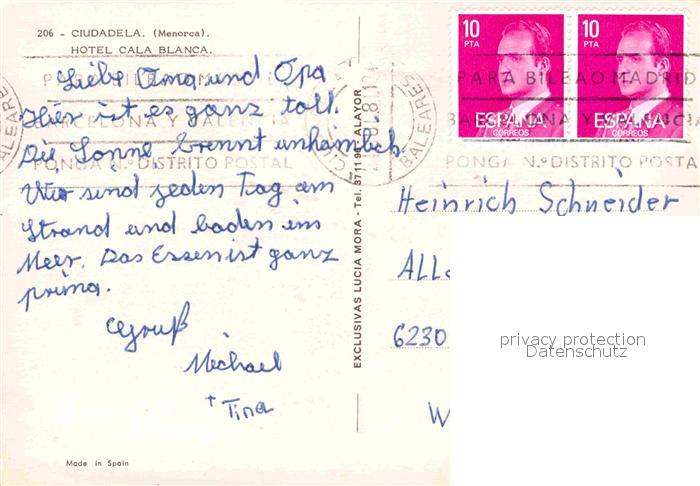 206 - CIUDADELA. (Menorca).
HOTEL CALA BLANCA.
Liebe Oma und Opa
Hier ist es ganz toll.
Die Sonne brennt unhamheb.
Wir sind jeden Tag am
Strand und baden im
Meer. Das Essen ist ganz
prima.
Gruß
Michael
+ Tina
Made in Spain
EXCLUSIVAS LUCIA MORA - Tel. 37 11 96 - ALAYOR
10
PTA
ESPAÑA
CORREOS
10
PTA
ESPAÑA
CORREOS
PARA BILBAO MADRID
BARCELONA Y VALENCIA
PONGA N.º DISTRITO POSTAL
BALEARES
PARA BILBAO MADRID
PONGA N.º DISTRITO POSTAL
BALEARES
Heinrich Schneider
ALL
6230
W
privacy protection
Datenschutz